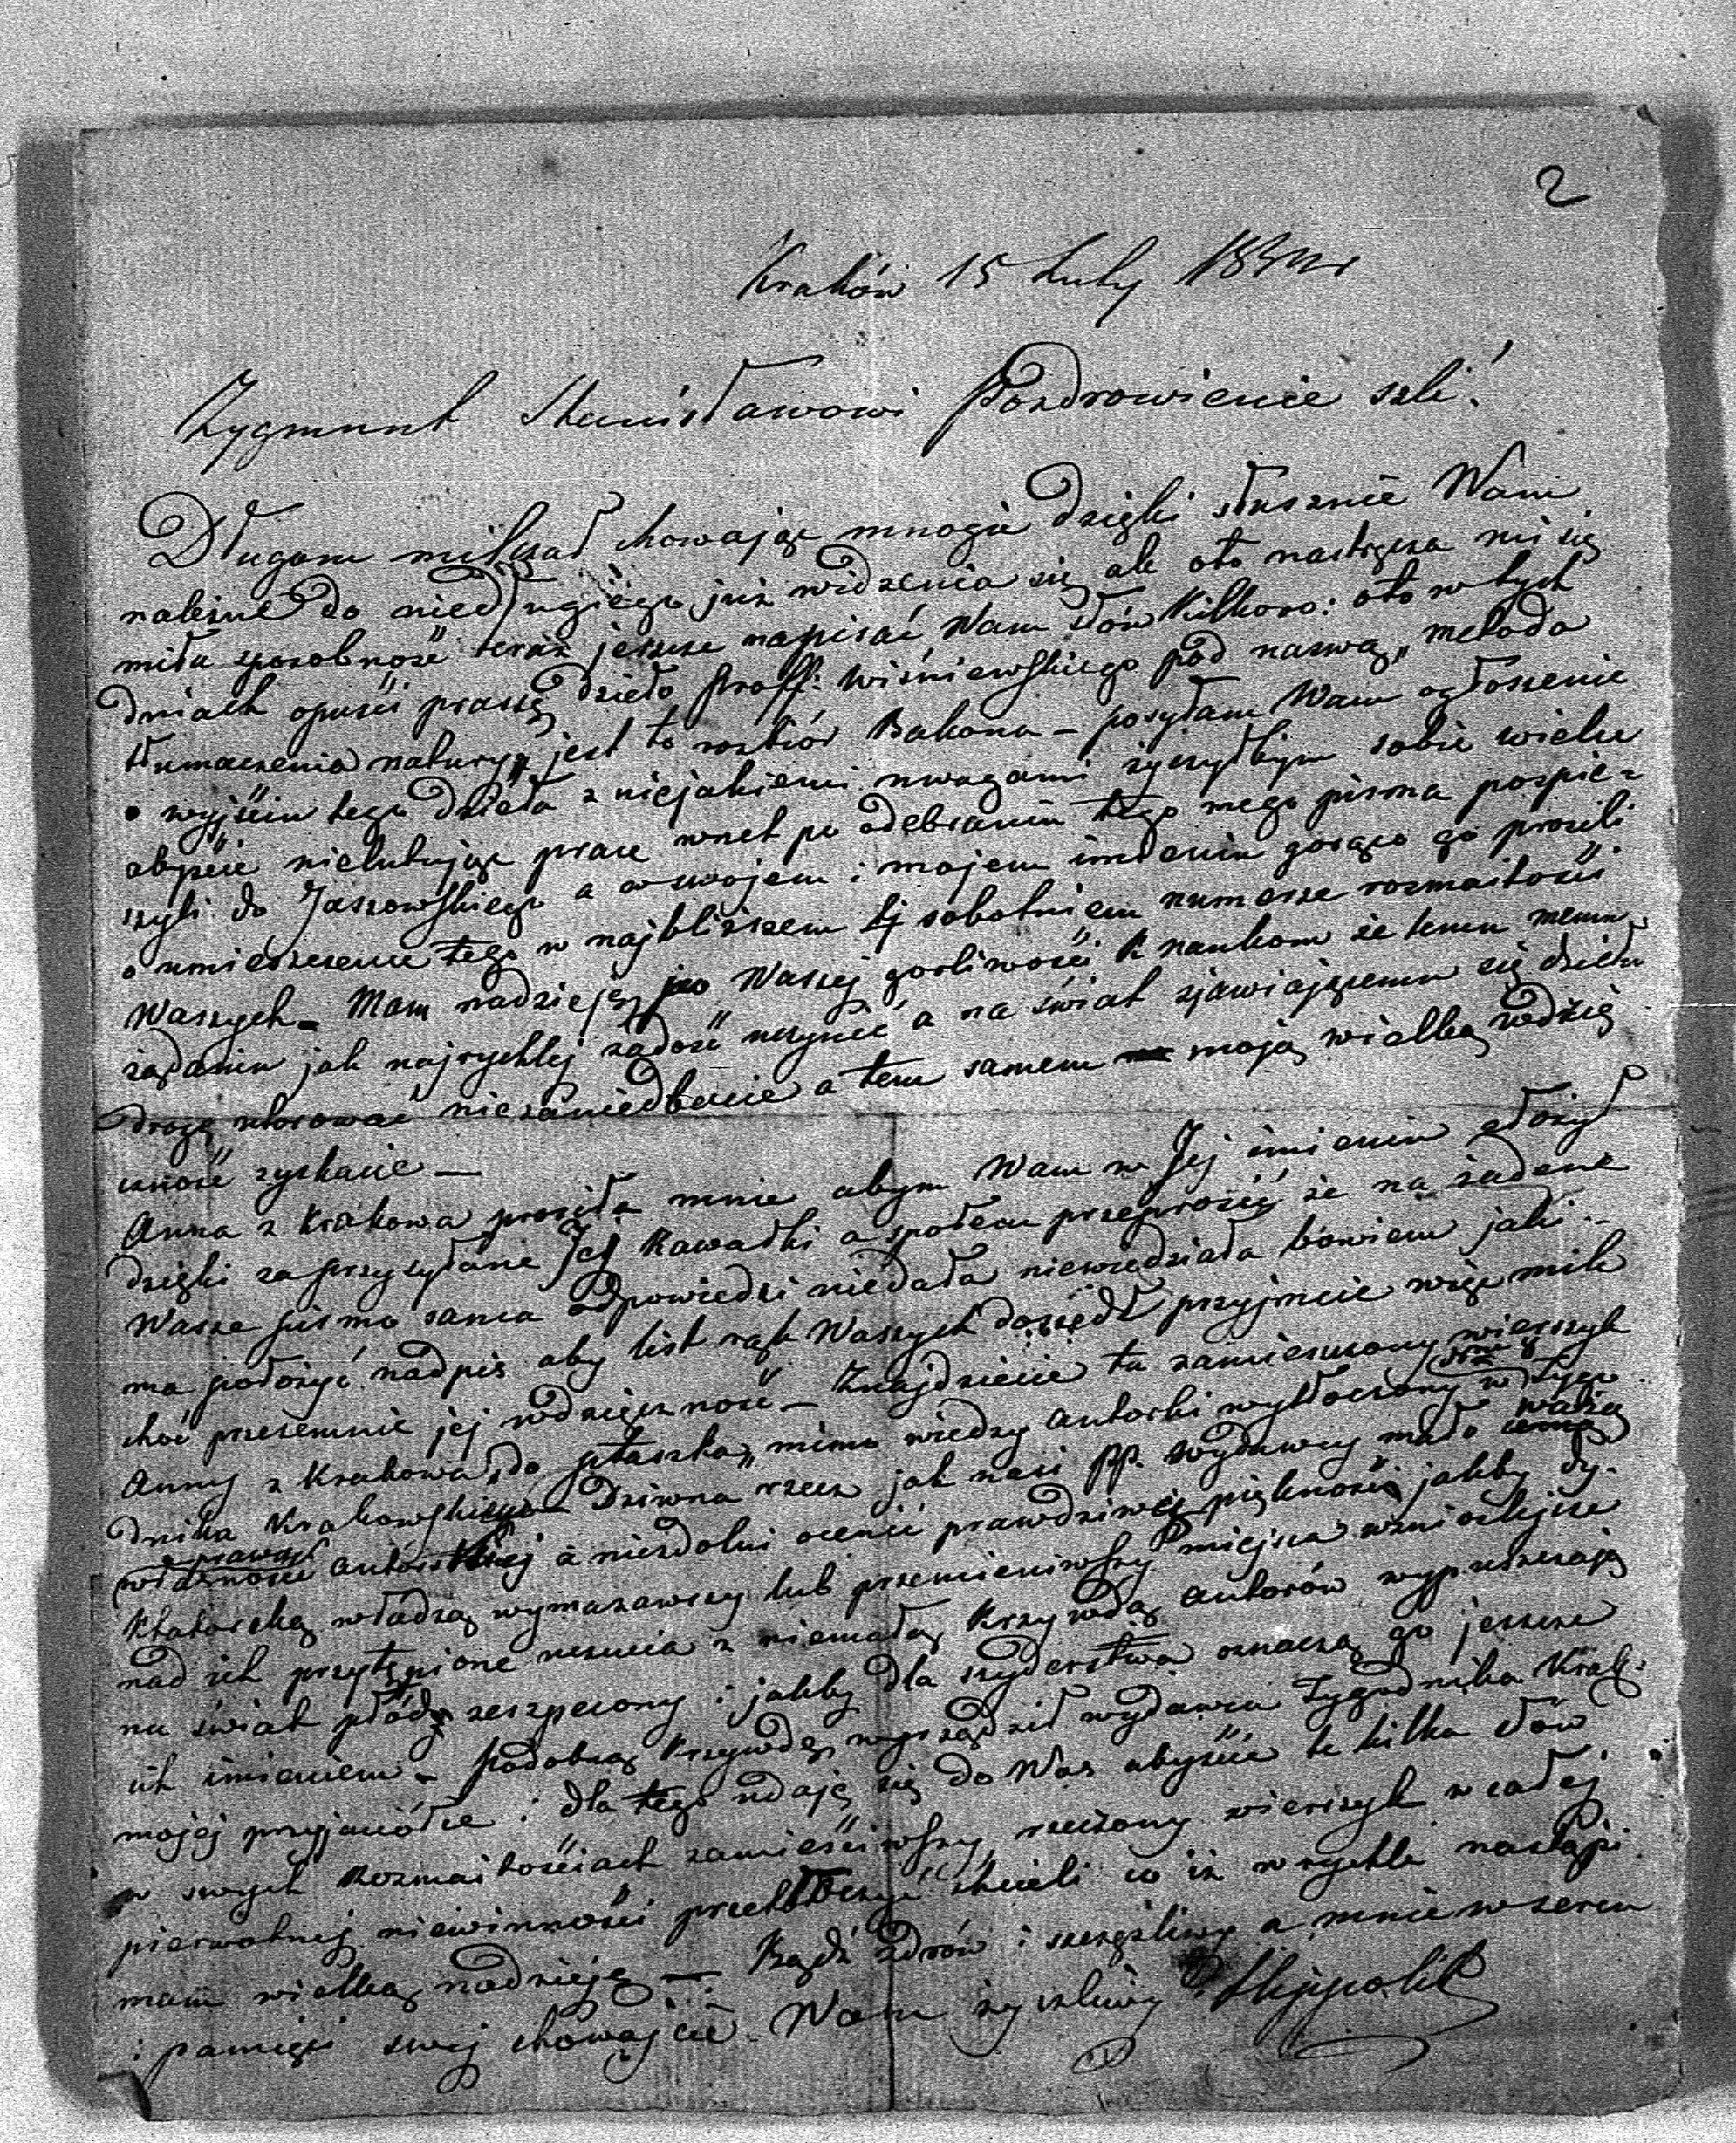 2
Kraków 15 Luty 1834r
Zygmunt Stanisławowi Pozdrowienie szle!
Długom milczał chowając mnogie dzięki słusznie Wam
należne do niedługiego już widzenia się ale oto nastręcza mi się
miła sposobność teraz jeszcze napisać Wam słów kilkoro: oto w tych
dniach opuści prassę dzieło Proff: Wiśniewskiego pod nazwą „metoda
tłumaczenia natury„ jest to rozbiór Bakona – posyłam Wam ogłoszenie
o wyjściu tego dzieła z niejakiemi uwagami życzyłbym sobie wielce
abyście nielutując prace wnet po odebraniu tego mego pisma pospie=
szyli do Jaszowskiego a w swojem i mojem imieniu gorąco go prosili
o umieszczenie tego w najbliższem tj sobotniem numerze rozmaitości
Waszych – Mam nadzieję po Waszej gorliwości k naukom że temu memu
żądaniu jak najrychlej zadość uczynić a na świat zjawiającemu się dziełu
drogę utorować niezaniedbacie a tem samem moją wielką wdzię
czność zyskacie –
Anna z Krakowa prosiła mnie abym Wam w Jej imieniu złożył
dzięki za przysyłanie Jej kawałki a społem przeprosić że na żadene
Wasze pismo sama odpowiedzi niedała niewiedziała bowiem jaki
ma położyć nadpis aby list rąk Waszych doszedł przyjmcie więc mile
choć przezemnie jej wdzięczność – Znajdziecie tu zamieszczony wierszyk
Anny z Krakowa „do ptaszka„ mimo wiedzy autorki wytłoczony w Tygo
dnika Krakowskiego – Dziwna rzecz jak nasi PP. Wydawcy mało ważą
własność autorskiej a niezdolni ocenić prawdziwej piękności jakby dy-
ktatorską władzą wymazawszy lub przemieniwszy miejsca wznioślejsze
nad ich przytępione uczucia z niemałą krzywdą autorów wypuszczają
na świat płód zeszpecony i jakby dla szyderstwa oznaczą go jeszcze
ich imieniem – Podobną krzywdę wyrządził wydawca Tygodnika Krak:
mojej przyjaciółce i dla tego udaję się do Was abyście te kilka słów
w swych Rozmaitościach zamieściwszy rzeczony wierszyk w całej
pierwotnej niewinności przetłoczyć chcieli co iż w rychle nastąpi
mam wielką nadzieję – Bądź zdrów i szczęśliwy a mnie w sercu
i pamięci swej chowajcie. Wam życzliwy